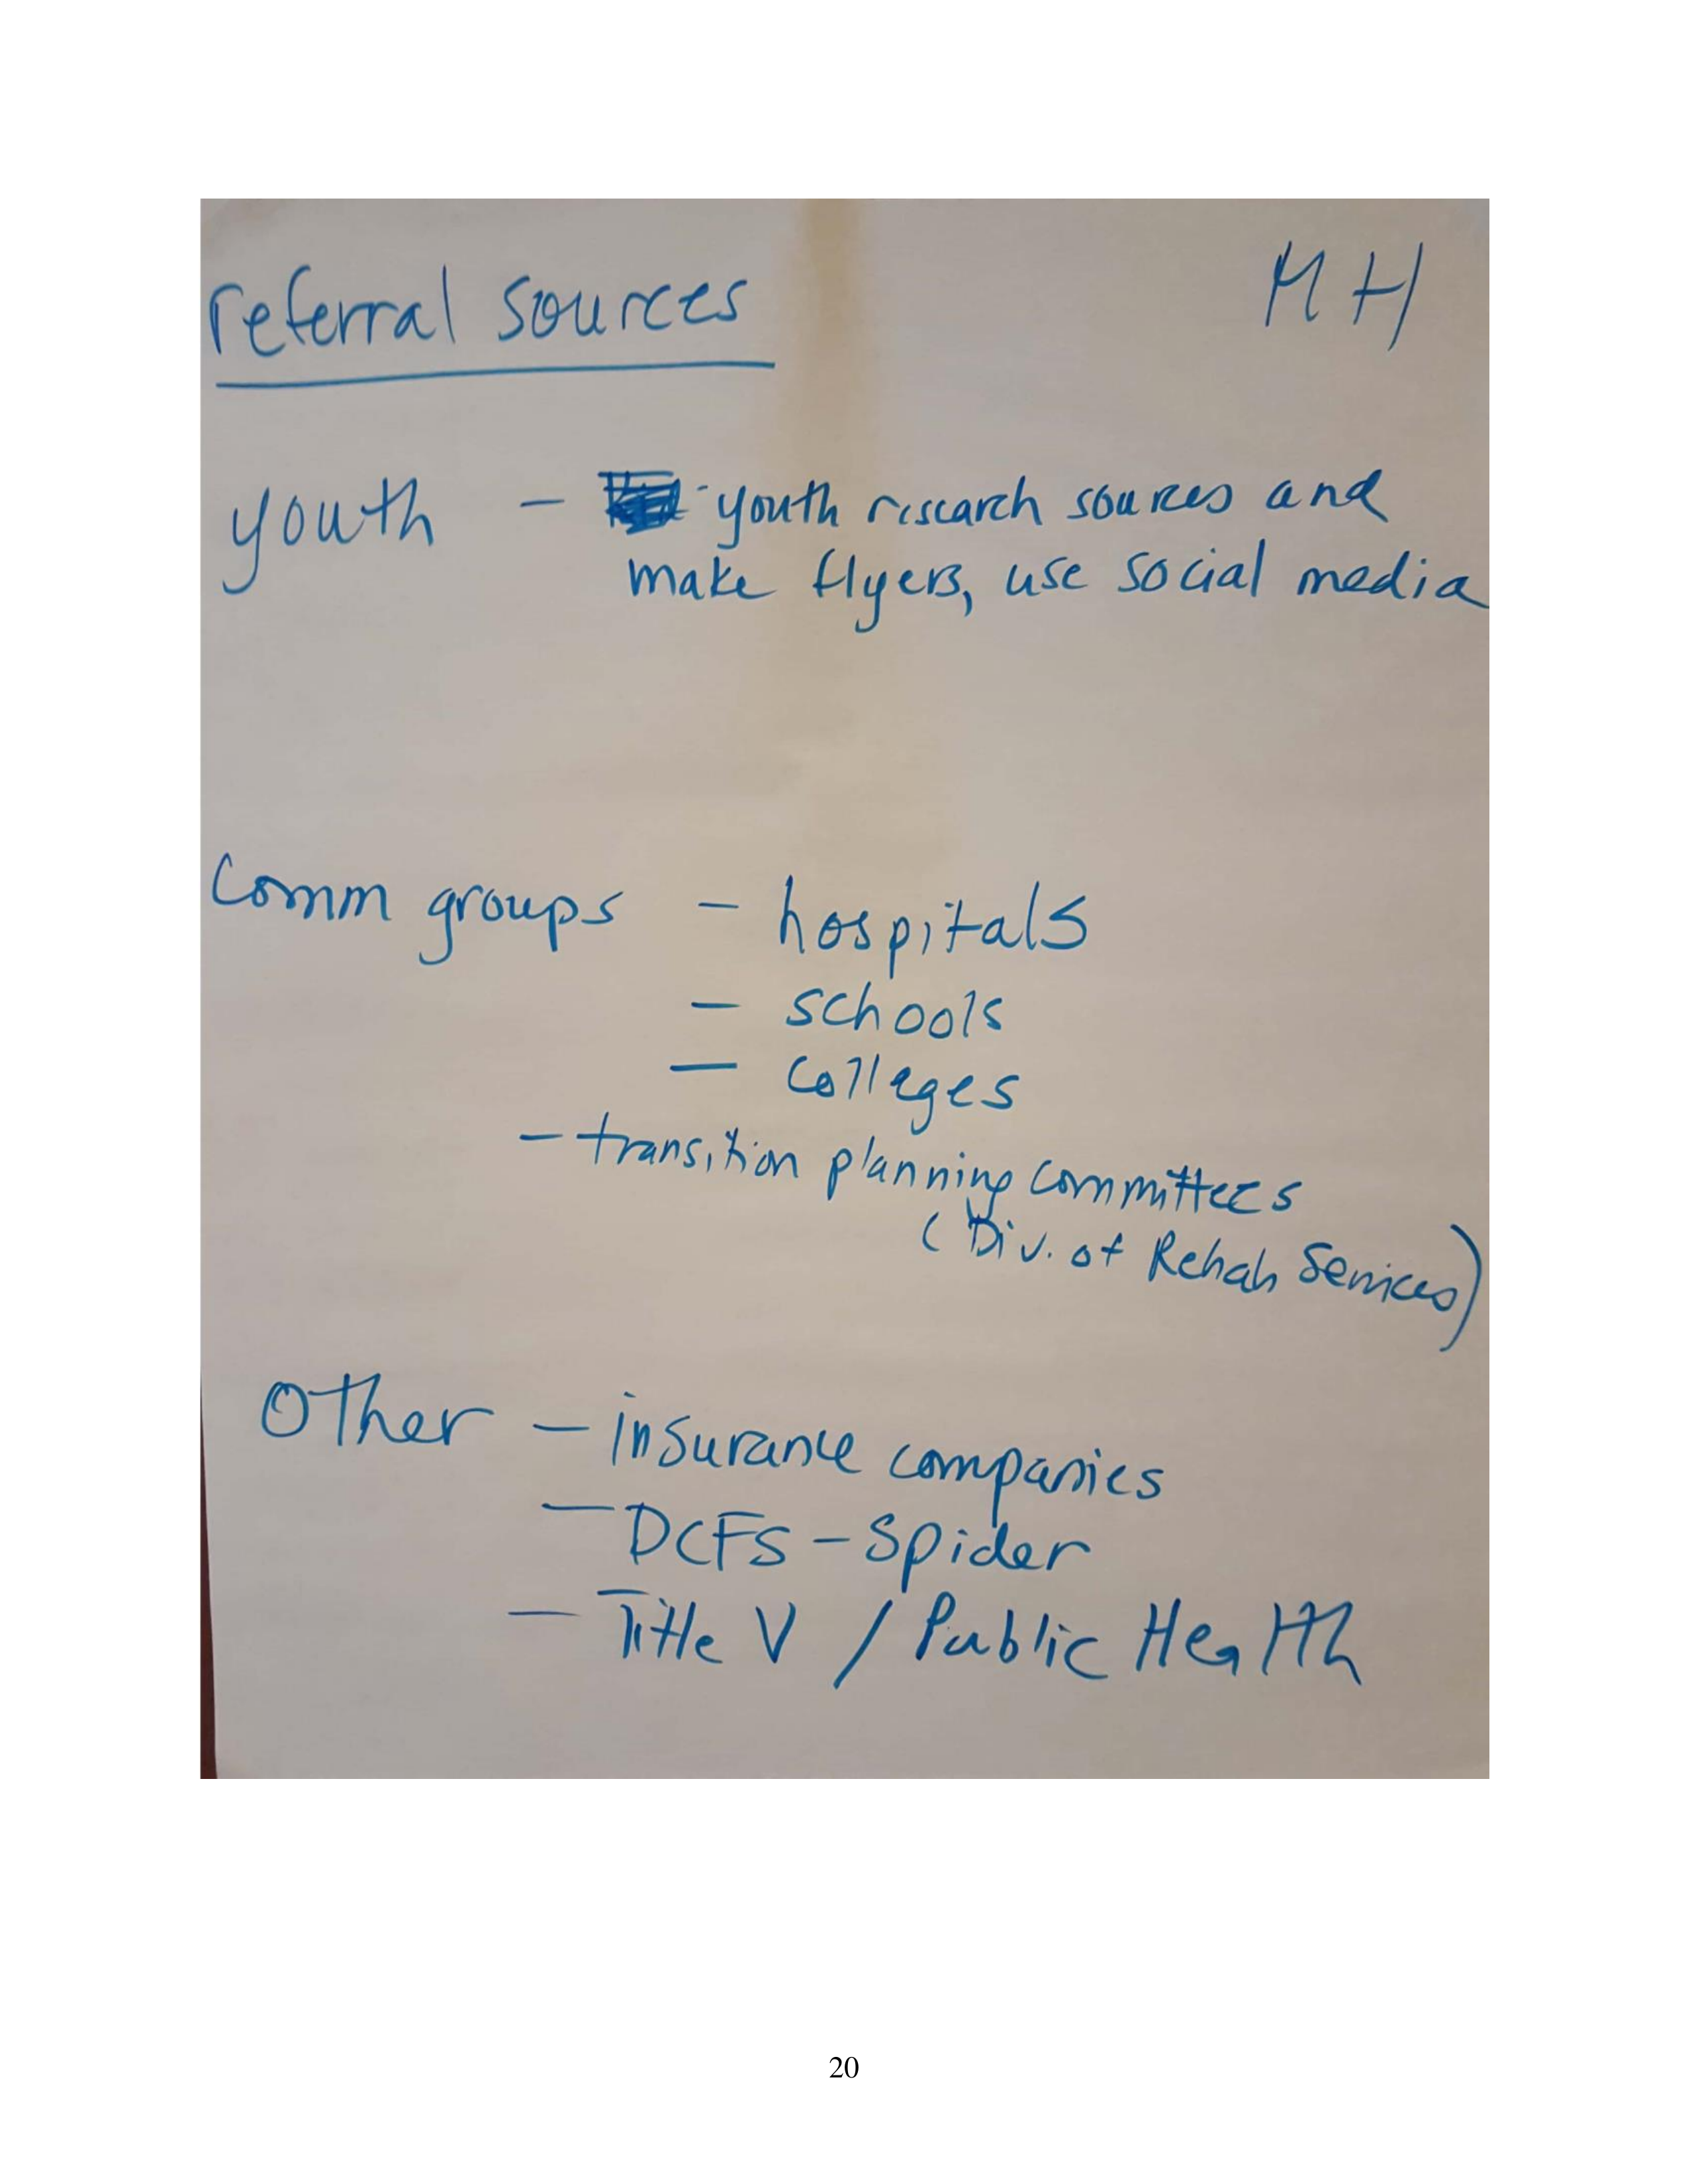 referral sources MH
youth - youth research sources and
make flyers, use social media
Comm groups - hospitals
- schools
- colleges
- transition planning committees
(Div. of Rehab Services)
Other - insurance companies
- DCFS - Spider
- Title V / Public Health
20